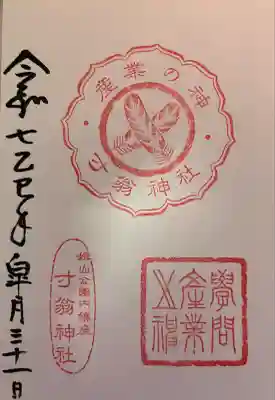 産業の神
寸翁神社
學問
産業
之神
姫山公園内鎮座
寸翁神社
令和七乙巳年皐月三十一日